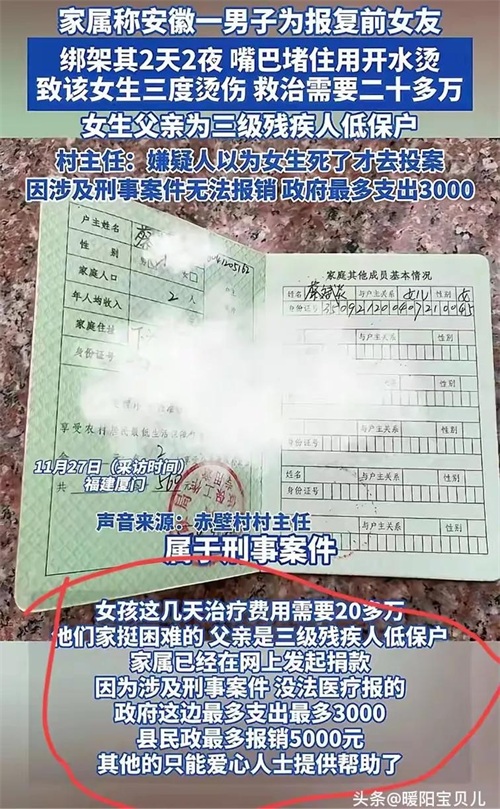 家属称安徽一男子为报复前女友
绑架其2天2夜 嘴巴堵住用开水烫
致该女生三度烫伤 救治需要二十多万
女生父亲为三级残疾人低保户
村主任：嫌疑人以为女生死了才去投案
因涉及刑事案件无法报销 政府最多支出3000
户主姓名
性别
家庭人口 2 人
年人均收入
家庭住址
身份证号
享受农村居民最低生活保障
共
家庭其他成员基本情况
姓名 与户主关系 女儿 性别 女
身份证号
姓名 与户主关系 性别
身份证号
姓名 与户主关系 性别
身份证号
姓名 与户主关系 性别
身份证号
姓名 与户主关系 性别
身份证号
11月27日（采访时间）
福建厦门
声音来源：赤壁村村主任
属于刑事案件
女孩这几天治疗费用需要20多万
他们家挺困难的 父亲是三级残疾人低保户
家属已经在网上发起捐款
因为涉及刑事案件 没法医疗报的
政府这边最多支出最多3000
县民政最多报销5000元
其他的只能爱心人士提供帮助了
头条@暖阳宝贝儿